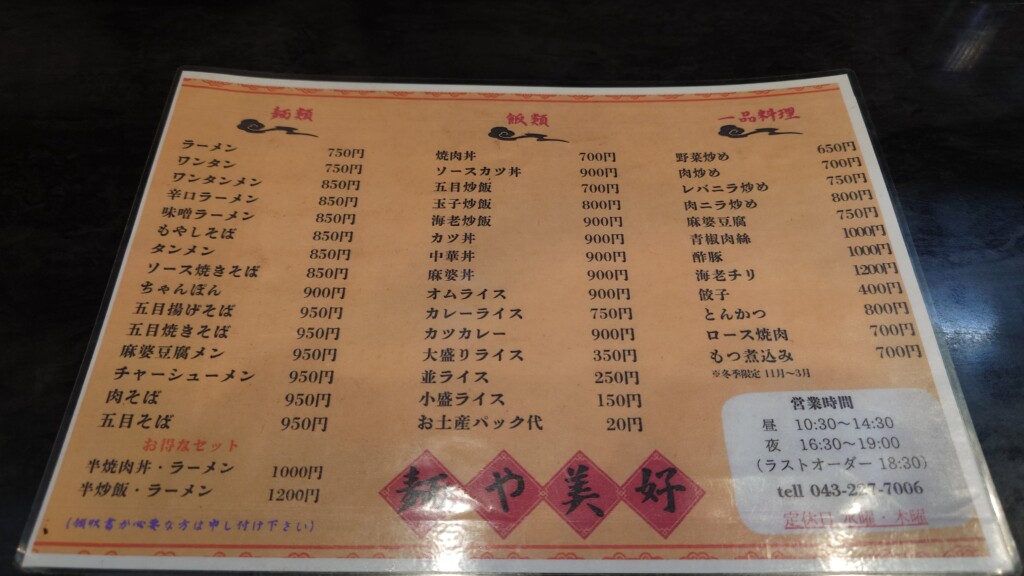 麺類
ラーメン 750円
ワンタン 750円
ワンタンメン 850円
辛口ラーメン 850円
味噌ラーメン 850円
もやしそば 850円
タンメン 850円
ソース焼きそば 850円
ちゃんぽん 900円
五目揚げそば 950円
五目焼きそば 950円
麻婆豆腐メン 950円
チャーシューメン 950円
肉そば 950円
五目そば 950円
お得なセット
半焼肉丼・ラーメン 1000円
半炒飯・ラーメン 1200円
(領収書が必要な方は申し付け下さい)
飯類
焼肉丼 700円
ソースカツ丼 900円
五目炒飯 700円
玉子炒飯 800円
海老炒飯 900円
カツ丼 900円
中華丼 900円
麻婆丼 900円
オムライス 900円
カレーライス 750円
カツカレー 900円
大盛りライス 350円
並ライス 250円
小盛ライス 150円
お土産パック代 20円
麺や美好
一品料理
野菜炒め 650円
肉炒め 700円
レバニラ炒め 750円
肉ニラ炒め 800円
麻婆豆腐 750円
青椒肉絲 1000円
酢豚 1000円
海老チリ 1200円
餃子 400円
とんかつ 800円
ロース焼肉 700円
もつ煮込み 700円
※冬季限定 11月～3月
営業時間
昼 10:30～14:30
夜 16:30～19:00
(ラストオーダー 18:30)
tell 043-237-7006
定休日 水曜・木曜